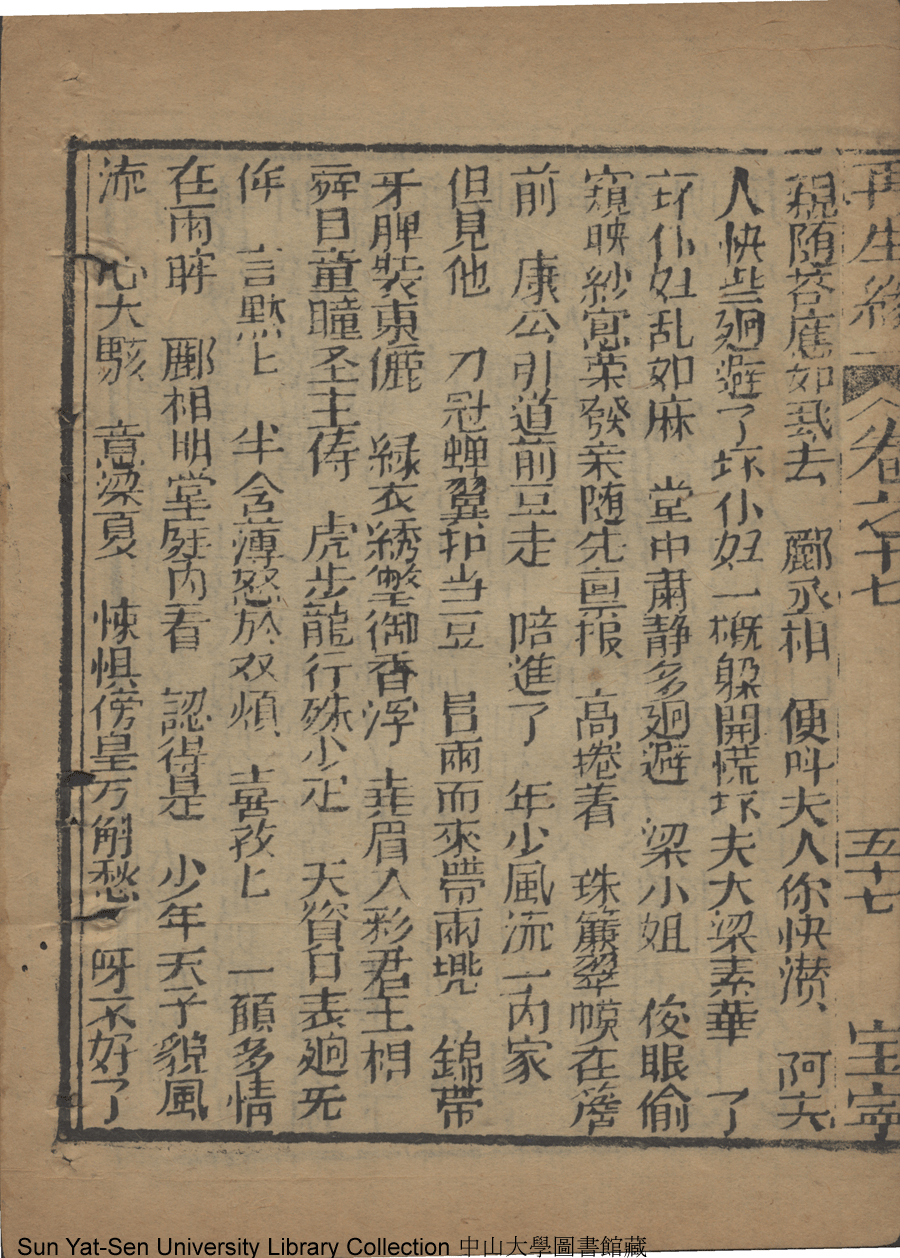 再生緣 卷之十七 五十七 宝寧
親随荅應如飛去 酈丞相 便叫夫人你快潜 阿夫
人快些廻避了 吓仆妇一槪躲開慌坏夫大梁素華 了
吓仆妇乱如麻 堂中肅静多廻避 梁小姐 俊眼偷
窺映紗窓荣發亲随先禀报 高捲着 珠簾翠幙在簷
前 康公引道前豆走 陪進了 年少風流一内家
但見他 刀冠蝉翼护当豆 吕兩而來帶兩 錦帶
牙牌裝束儷 緑衣綉蟒御香浮 堯眉八彩君王相
舜目童瞳圣主俦 虎步龍行殊少疋 天資日表廻无
侔 言黙匕 半含薄怒於双煩 喜孜匕 一顧多情
在兩眸 酈相明堂庭内看 認得是 少年天子貌風
流 心大駭 意梁夏 悚惧傍皇万斛愁 呀不好了
Sun Yat-Sen University Library Collection 中山大學圖書館藏